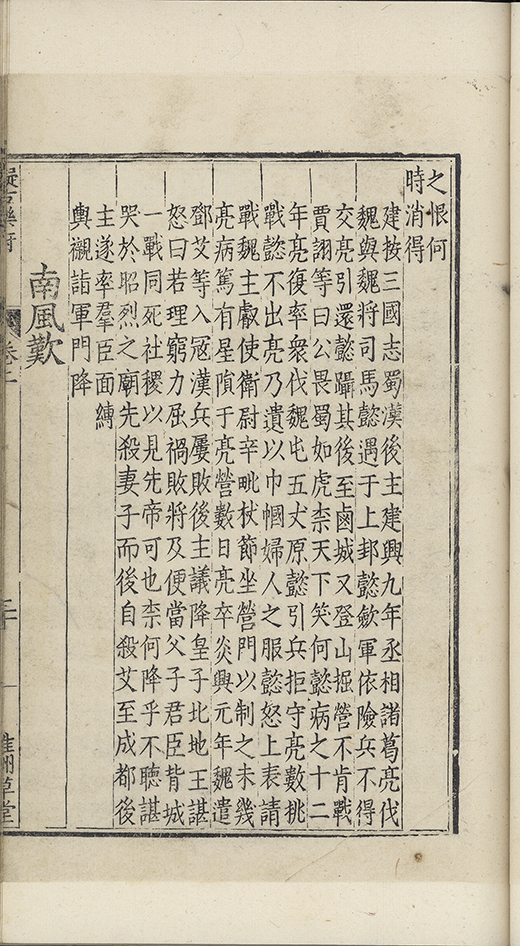 之恨何
時消得
建按三國志蜀漢後主建興九年丞相諸葛亮伐
魏與魏将司馬懿遇于上邽懿歛軍依險兵不得
交亮引還懿躡其後至鹵城又登山掘營不肯戰
賈詡等曰公畏蜀如虎柰天下笑何懿病之十二
年亮復率衆伐魏屯五丈原懿引兵拒守亮數挑
戰懿不出亮乃遺以巾幗婦人之服懿怒上表請
戰魏主叡使衛尉辛毗杖節坐營門以制之未幾
亮病篤有星隕于亮營數日亮卒炎興元年魏遣
鄧艾等入寇漢兵屢敗後主議降皇子北地王諶
怒曰若理窮力屈禍敗将及便當父子君臣背城
一戰同死社稷以見先帝可也柰何降乎不聽諶
哭於昭烈之廟先殺妻子而後自殺艾至成都後
主遂率羣臣面縛
輿襯詣軍門降
南風歎
擬古樂府
卷上
草堂